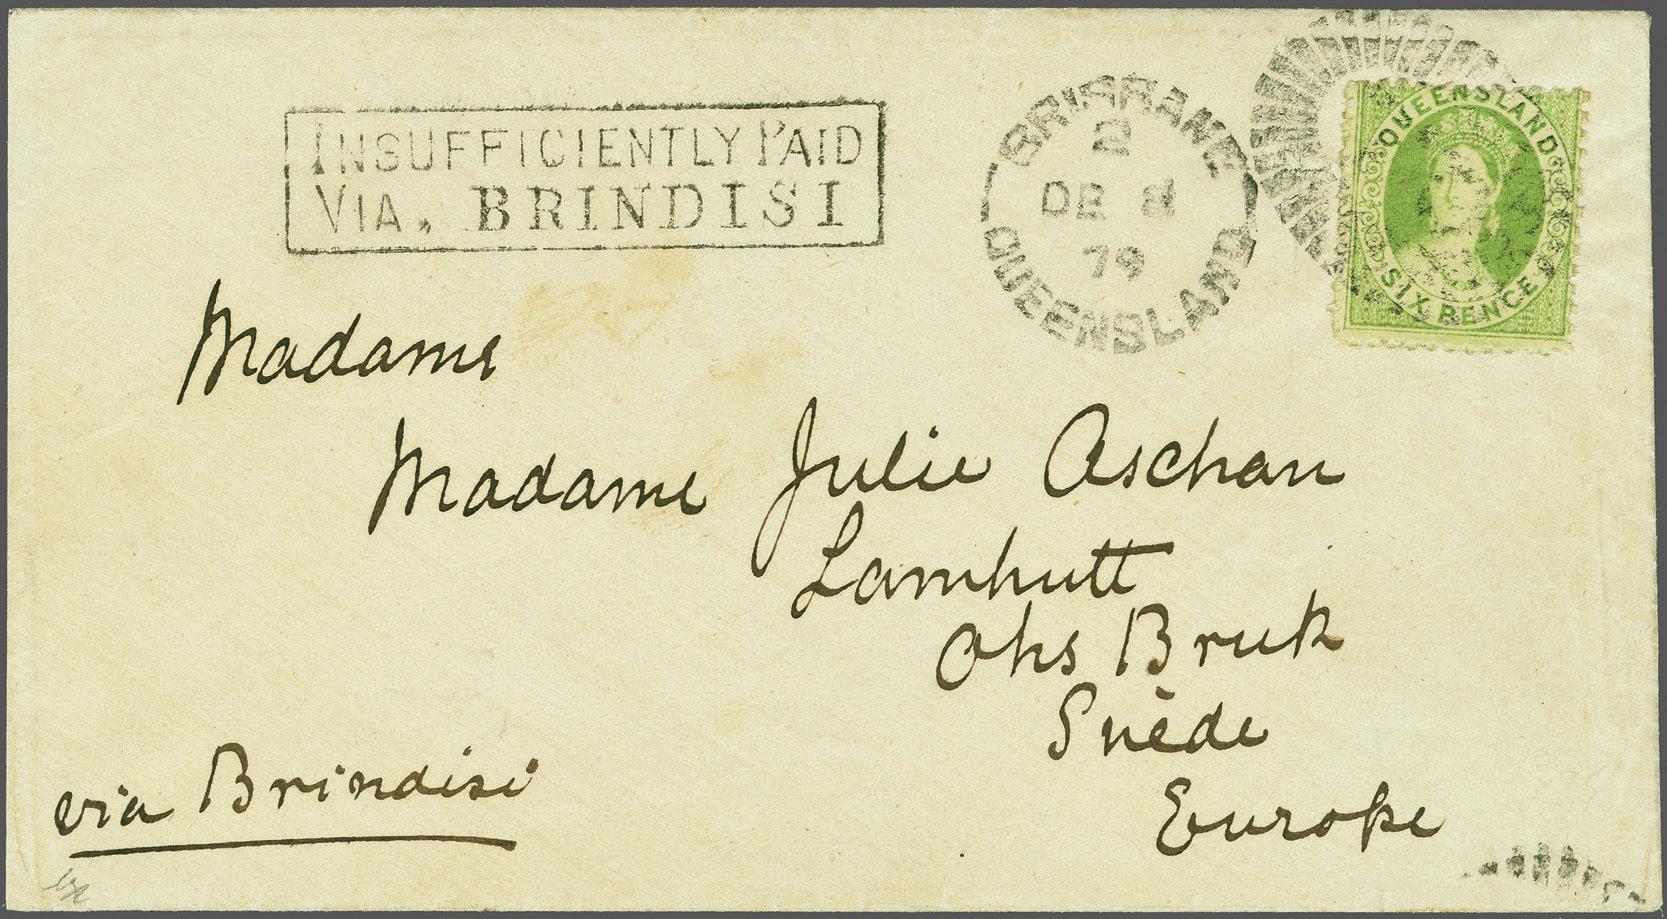 INSUFFICIENTLY PAID
VIA. BRINDISI
BRISBANE
2
DE 2
79
QUEENSLAND
QUEENSLAND
SIX PENCE
Madame
Madame Julie Aschan
Lamhutt
Ohs Bruk
Suède
Europe
via Brindisi